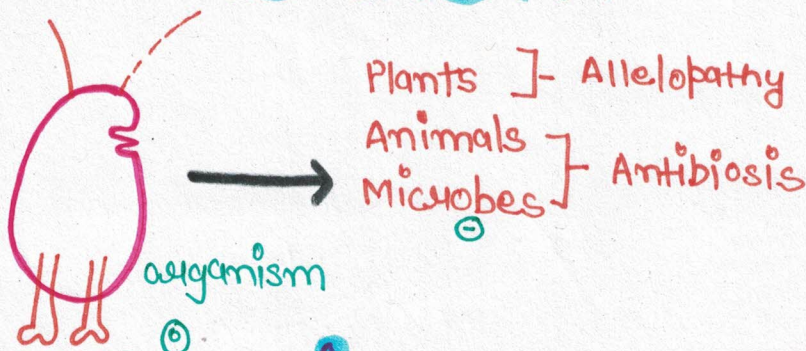 Plants ]- Allelopathy
Animals
Microbes ]- Antibiosis
⊖
organism
⊙